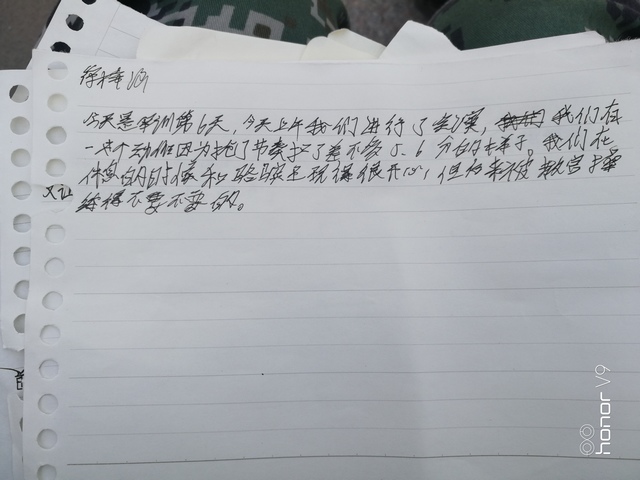 今天是军训第6天,今天上午我们进行了会演,我们在
一个动作因为抢了节奏扣了差不多5、6分的样子。我们在
休息的时候和 玩得很开心,但后来被教官操
练得不要不要的。
honor V9